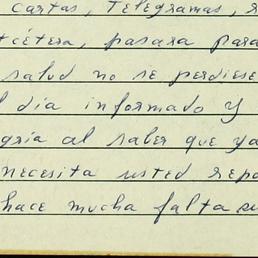 cartas, Telegramas, r
tcétera, pasara para
salud no se perdiese
l día informado y
gría al saber que ya
necesita usted repo
hace mucha falta su